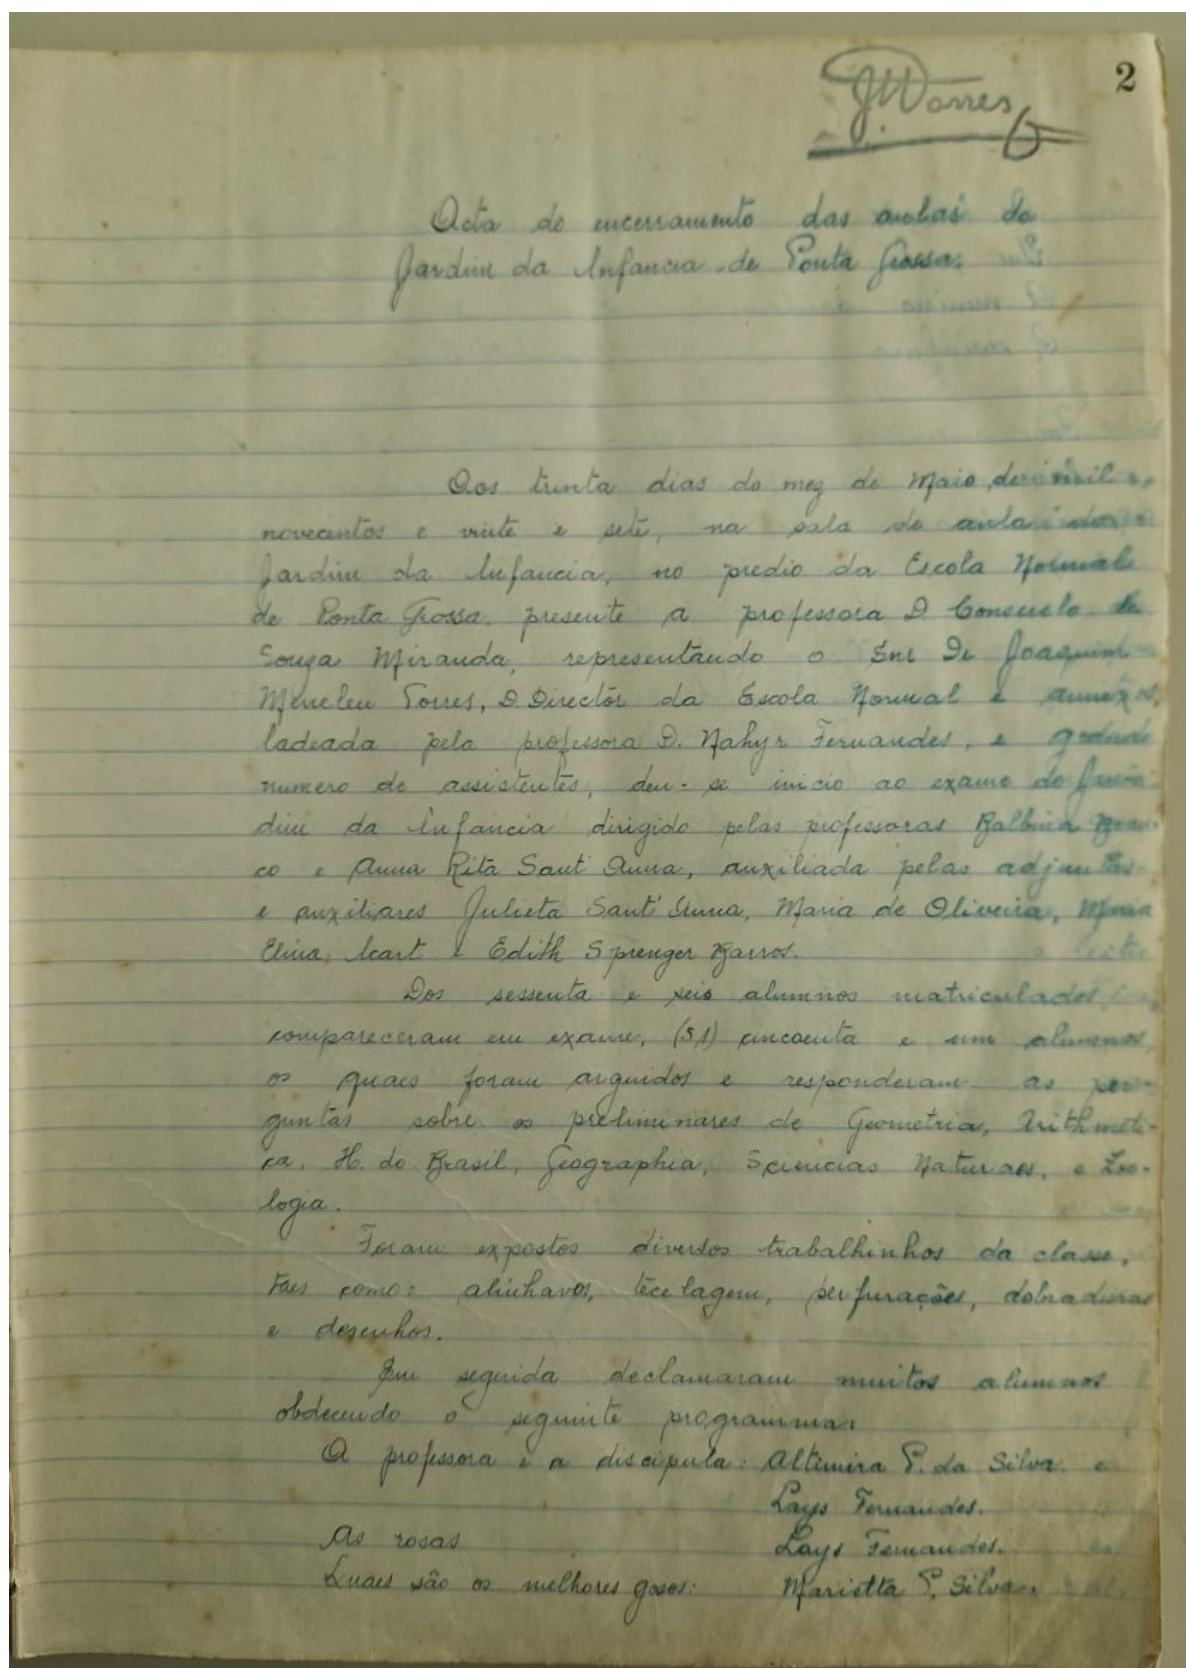 2
JMTorres
Acta do encerramento das aulas do
Jardim da Infancia de Ponta Grossa.
Aos trinta dias do mez de Maio de mil
novecentos e vinte e sete, na sala de aula do
Jardim da Infancia, no predio da Escola Normal
de Ponta Grossa, presente a professora D. Consuelo de
Souza Miranda, representando o Snr Dr Joaquim
Meneleu Torres, D. Directôr da Escola Normal e annexos,
ladeada pela professora D. Nahyr Fernandes, e grande
numero de assistentes, deu-se inicio ao exame do Jar-
dim da Infancia dirigido pelas professoras Balbina Bran-
co e Anna Rita Sant'Anna, auxiliada pelas adjuntas
e auxiliares Julieta Sant'Anna, Maria de Oliveira, Maria
Elina Icart e Edith Sprenger Barros.
Dos sessenta e seis alumnos matriculados
compareceram em exame, (51) cincoenta e um alumnos,
os quaes foram arguidos e responderam as per-
guntas sobre os preliminares de Geometria, Arithmeti-
ca, H. do Brasil, Geographia, Sciencias Naturaes, e Zoo-
logia.
Foram expostos diversos trabalhinhos da classe,
taes como: alinhavos, tecelagem, perfurações, dobraduras
e desenhos.
Em seguida declamaram muitos alumnos
obdecendo o seguinte programma:
A professora e a discipula: Altimira P. da Silva e
Lays Fernandes.
As rosas Lays Fernandes.
Quaes são os melhores gosos: Marietta P. Silva.